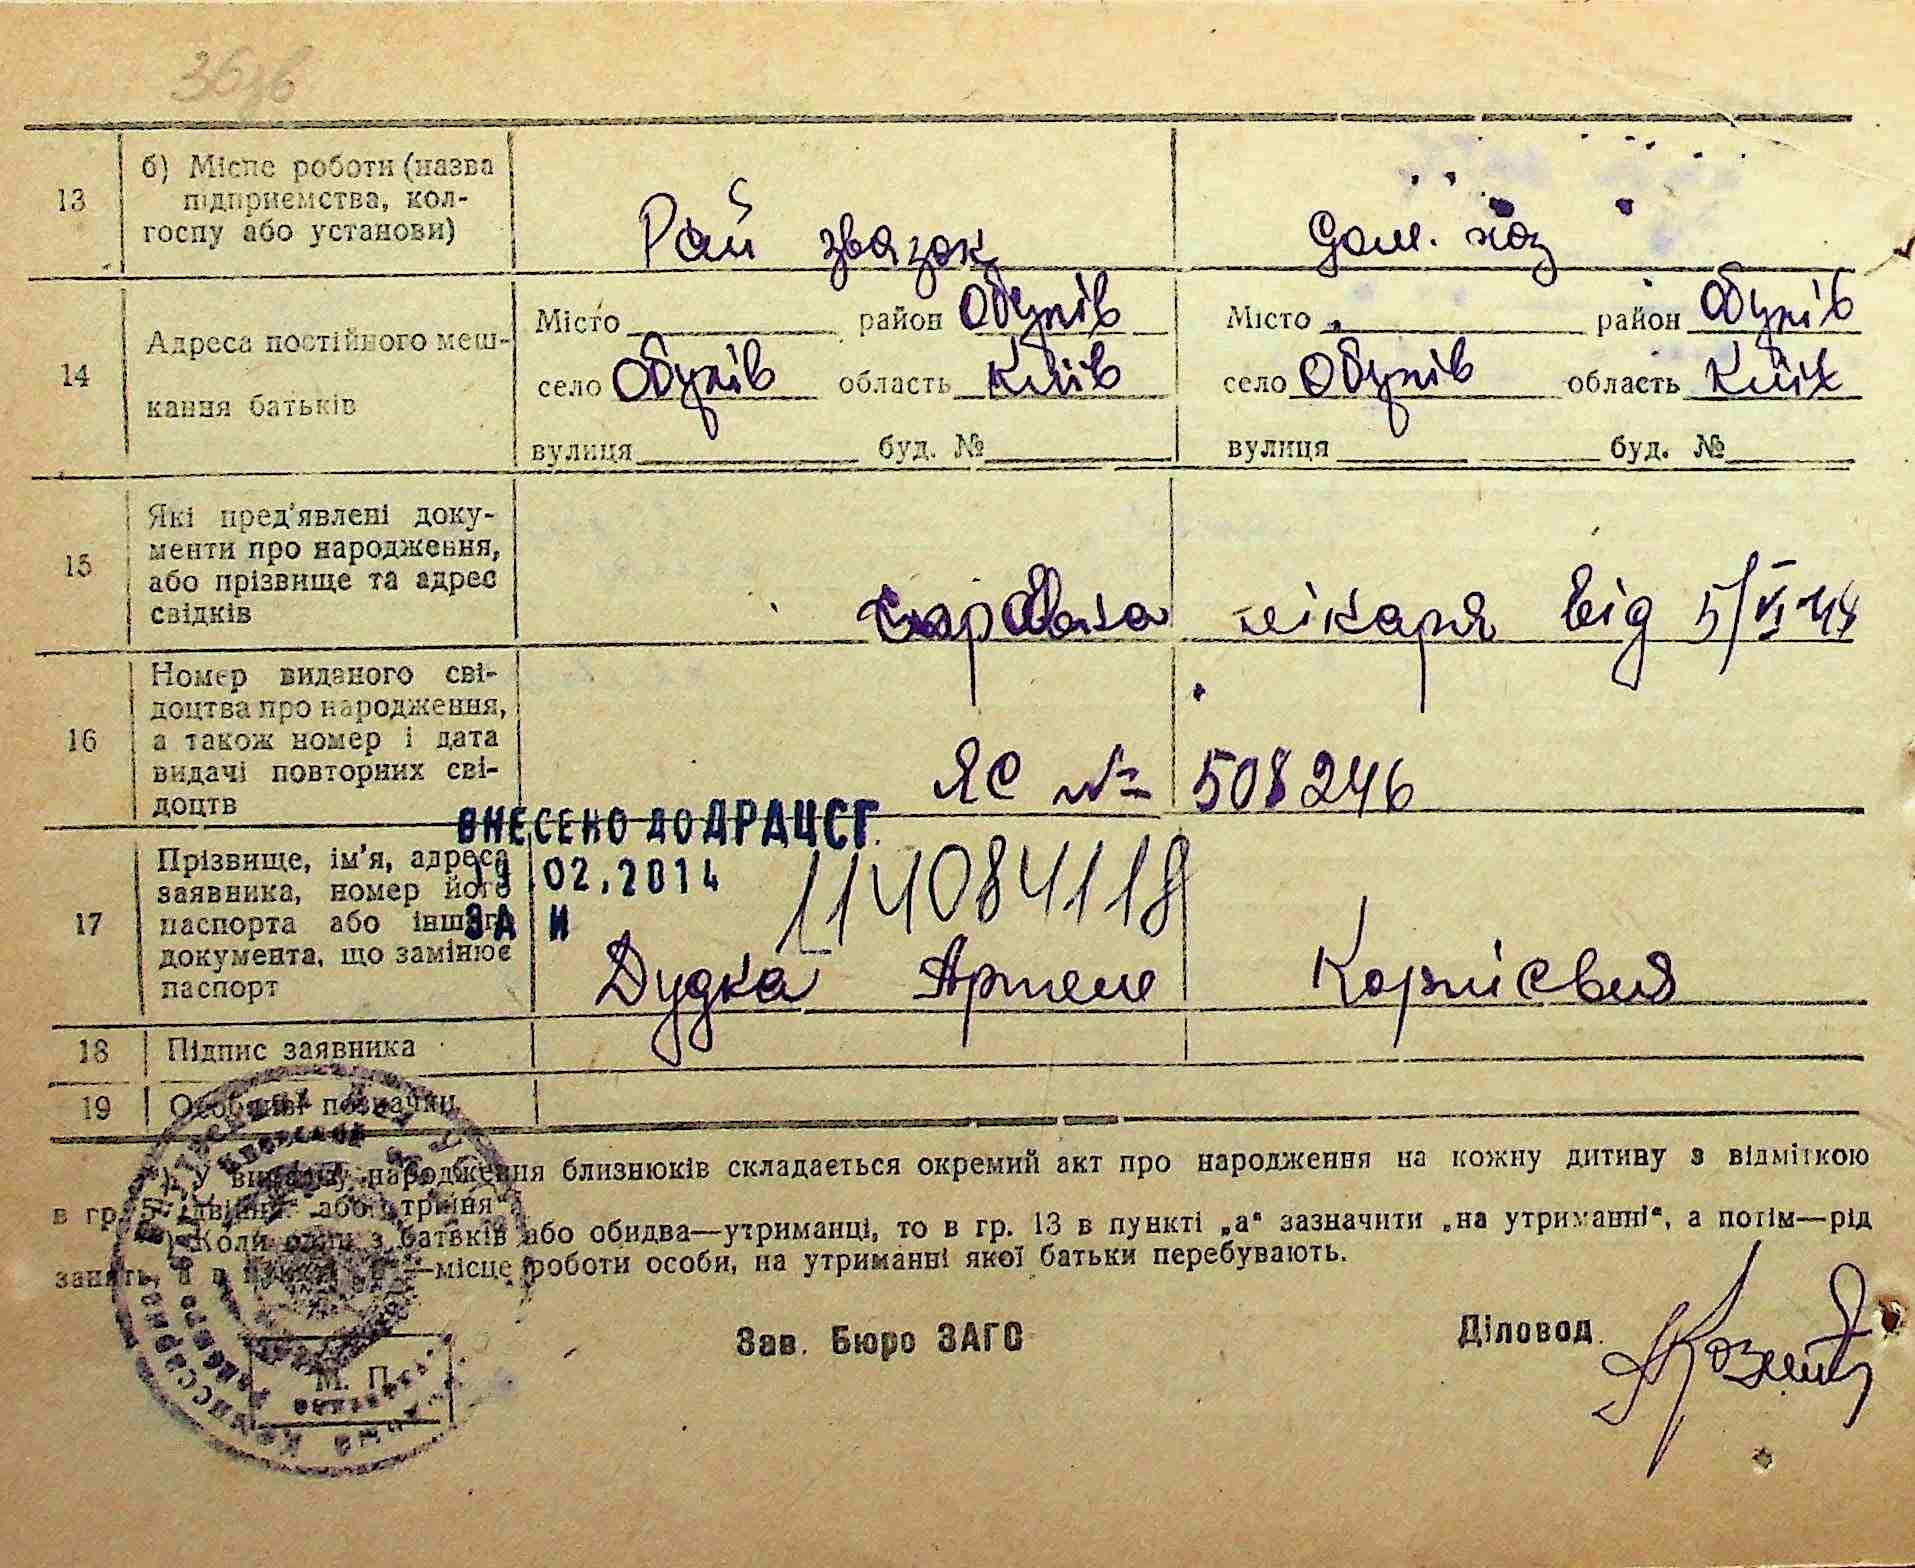 13
б) Місце роботи (назва
підприємства, кол-
госпу або установи)
Рай звязок
дом. хоз
14
Адреса постійного меш-
кання батьків
Місто район Обухів
село Обухів область Київ
вулиця буд. №
Місто район Обухів
село Обухів область Київ
вулиця буд. №
15
Які пред'явлені доку-
менти про народження,
або прізвище та адрес
свідків
лікаря від 5/VI 44
16
Номер виданого сві-
доцтва про народження,
а також номер і дата
видачі повторних сві-
доцтв
ЯС № 508246
ВНЕСЕНО ДО ДРАЦСГ
02.2014
ЗА №
114084118
17
Прізвище, ім'я, адреса
заявника, номер його
паспорта або іншого
документа, що замінює
паспорт
Дудка Артем Корнієвич
18
Підпис заявника
19
Особливі позначки
*) У випадку народження близнюків складається окремий акт про народження на кожну дитину з відміткою
в гр. 5 „двійня“ або „трійня“.
Коли один з батьків або обидва—утриманці, то в гр. 13 в пункті „а“ зазначити „на утриманні“, а потім—рід
занять, а в пункті —місце роботи особи, на утриманні якої батьки перебувають.
Зав. Бюро ЗАГС
Діловод
М. П.